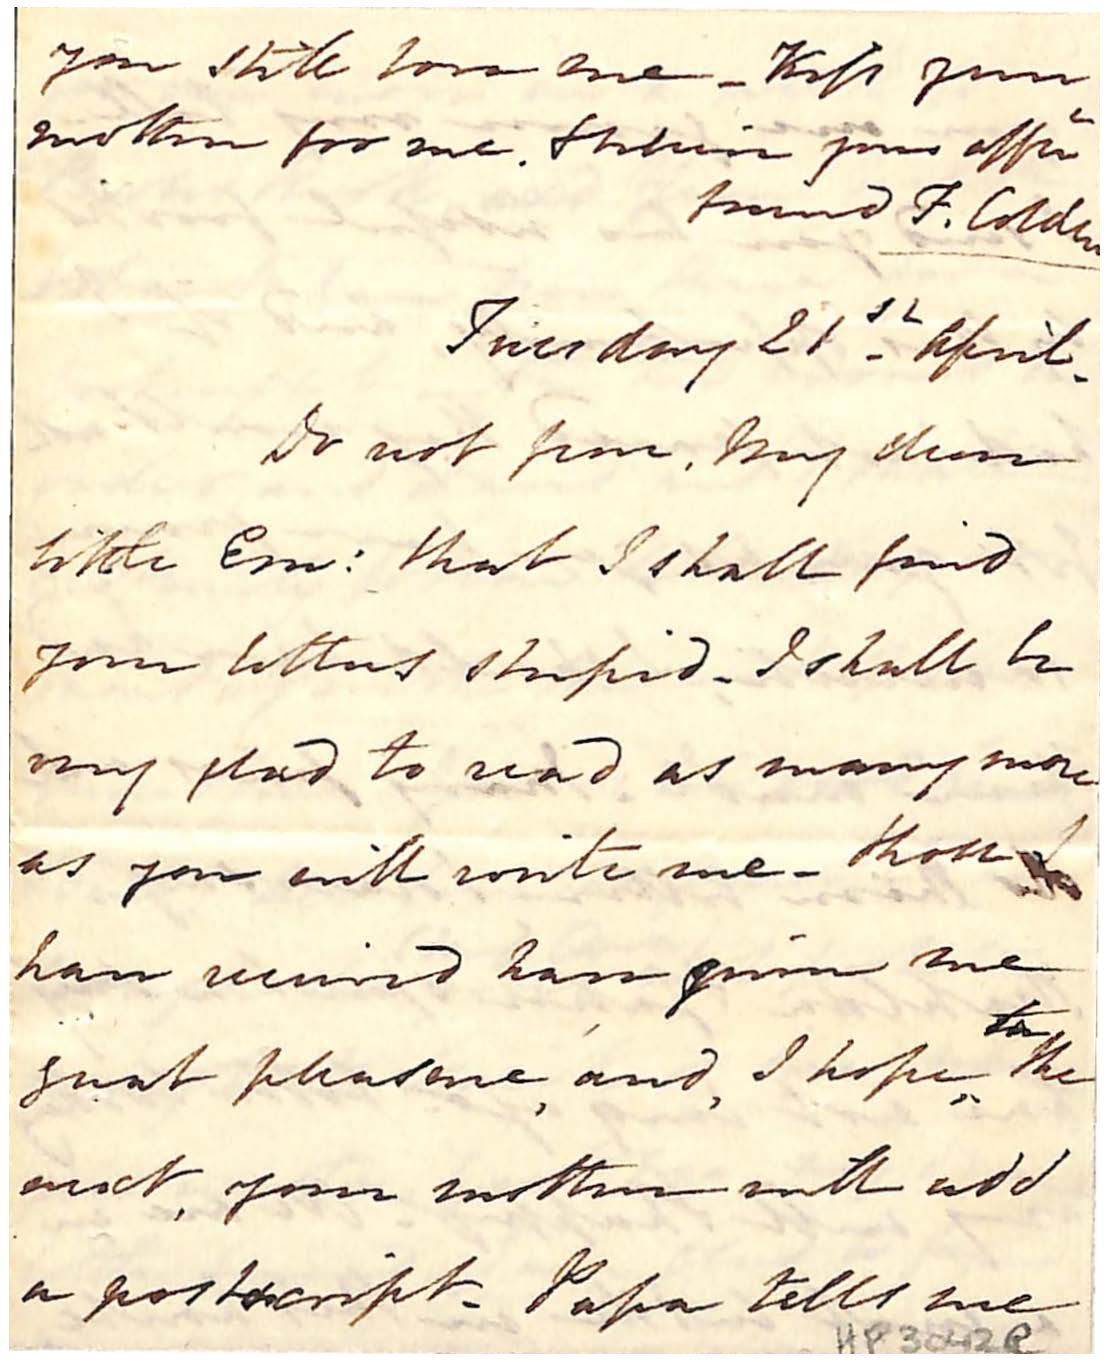 you still love me - Kiss your
mother for me. I believe your affte
friend F. Colden
Tuesday 21st April -
Do not fear, my dear
little Em: that I shall find
your letters stupid - I shall be
very glad to read as many more
as you will write me - those I
have received have given me
great pleasure, and, I hope, to the
next, your mother will add
a postscript - Papa tells me
HP 3042R